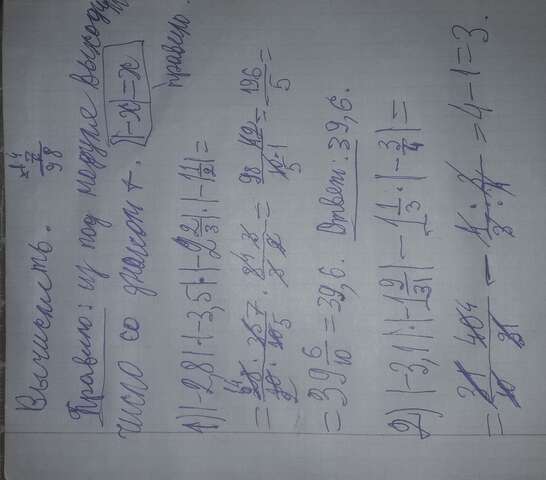 Вычислить.
14
× 7
98
Правило: из под модуля выходит
число со знаком +. |-x|=x
правило.
1) |-2,8|·|-3,5|·|-2 2/3|·|-1 1/2|=
= 28/10 · 35/10 · 8/3 · 3/2 = 98·12/10·1 = 196/5 =
= 39 6/10 = 39,6. Ответ: 39,6.
2) |-3,1|·|-1 9/31| - 1 1/3 · |-3/4| =
= 31/10 · 40/31 - 4/3 · 3/4 = 4-1=3.